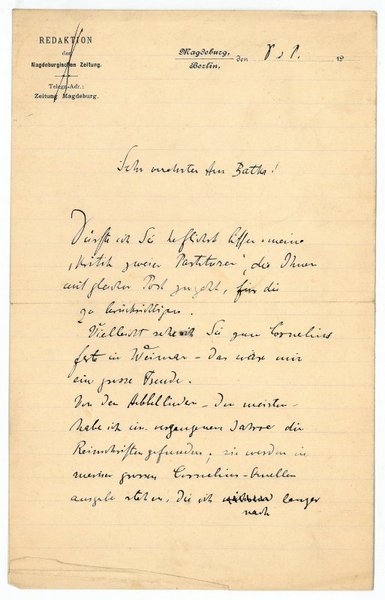 REDAKTION
der
Magdeburgischen Zeitung.
Telegr.-Adr.:
Zeitung Magdeburg.
Magdeburg,
Berlin, den
19
Sehr verehrter Herr Batka!
Dürfte ich Sie höflichst bitten meine
„Kritik zweier Partituren“, die Ihnen
mit gleicher Post zugeht, für die
zu berücksichtigen.
Vielleicht sehe ich Sie zum Cornelius
fest in Weimar – das wäre mir
eine grosse Freude.
Von den – den meisten –
habe ich im vergangenen Jahre die
Reinschriften gefunden; sie werden in
meiner grossen Cornelius-
ausgabe stehen, die ich
langer
nach